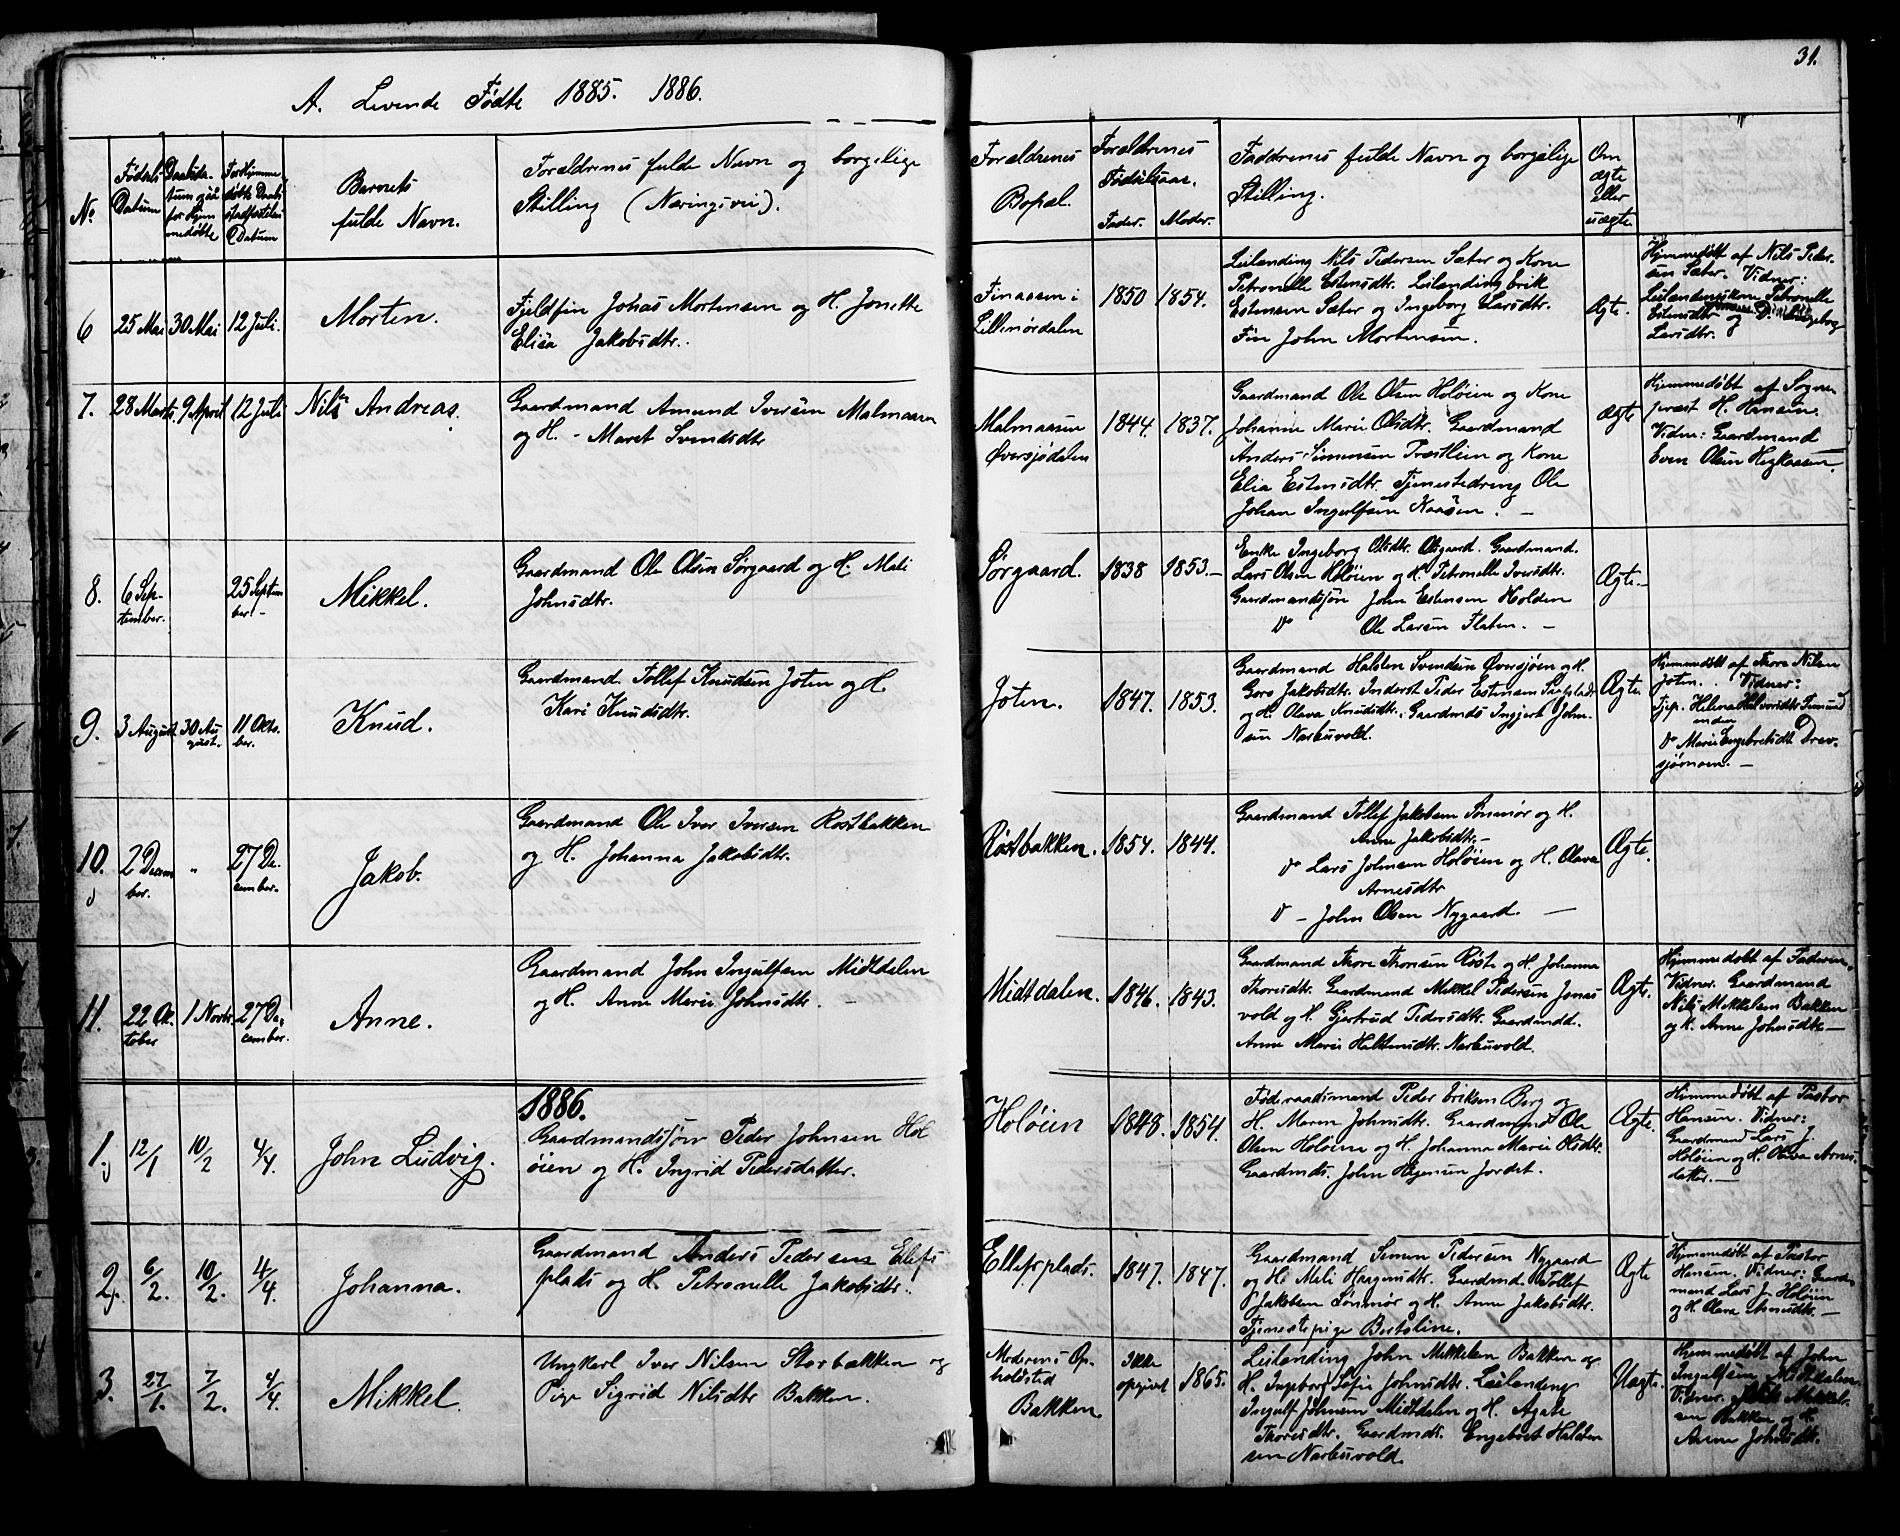 A. Levende Fødte 1885. 1886.
31.
No
Fødsels
Datum
Daabsda-
tum ogsaa
for hjem
medøbte
Fødsels
Datum
Barnets
fulde Navn.
Forældrenes fulde Navn og borgelige
Stilling (Næringsvei).
Forældrenes
Bopæl.
Forældrenes
Fødselsaar.
Fader. Moder.
Faddrenes fulde Navn og borgelige
Stilling.
Om
ægte
eller
uægte.
6
25 Mai
30 Mai
12 Juli.
Morten.
Fjeldfin Johas Mortensen og H. Jonette
Elisa Jakobsdtr.
Finaasen i
Lillenørdalen
1850
1854.
Leilænding Nils Pedersen Sæter og Kone
Petronelle Estensdtr. Leilænding Erik
Estensen Sæter og Ingeborg Larsdtr.
Fin John Mortensen.
Ægte.
Hjemmedøbt af Nils Peder-
sen Sæter. Vidner:
Leilændingskone Petronelle
Estensdtr og Ingeborg
Larsdtr.
7.
28 Marts
9 April
12 Juli
Nils Andreas.
Gaardmand Amund Iversen Malmaasen
og H. - Maret Svendsdtr
Malmaasen
Øversjødalen
1844.
1837.
Gaardmand Ole Olsen Holøien og Kone
Johanne Marie Olsdtr. Gaardmand
Anders Simensen Træthein og Kone
Elia Estensdtr. Tjenestedreng Ole
Johan Ingulfsen Kaasen. -
Ægte
Hjemmedøbt af Sogne-
præst H. Hansen.
Vidne: Gaardmand
Even Olsen
8.
6 Sep-
tember.
25 Septem
ber. -
Mikkel.
Gaardmand Ole Olsen Sørgaard og H. Mali
Johnsdtr.
Sørgaard.
1838
1853.-
Enke Ingeborg Olsdtr. Olsgaard. Gaardmand.
Lars Olsen Holøien og H. Petronelle Iversdtr.
Gaardmandssøn John Estensen Holden
Do Ole Larsen Flaten. -
Ægte.-
9.
3 August
30 Au-
gust.
11 Okto.
ber.
Knud.
Gaardmand Tollef Knudsen Joten og H.
Kari Knudsdtr.
Joten.
1847.
1853.
Gaardmand Halsten Svendsen Øversjøen og H.
Goro Jakobsdtr. Inderst Peder Estensen
og H. Olava Knudsdtr. Gaardmds Ingjert John-
sen Narbuvold.
Ægte
Hjemmedøbt af Thore Nilsen
Joten. Vidner:
Tjp. Helena Halvorsdtr Femund
enden
Do Marie Engebretsdtr Drev-
sjømoen. -
10.
2 Decem
ber.
"
27 De-
cember.
Jakob.
Gaardmand Ole Iver Iversen Røstbakken
og H. Johanna Jakobsdtr.
Røstbakken.
1854.
1844.
Gaardmand Tollef Jakobsen Sønmør og H.
Anne Jakobsdtr.-
Do Lars Johnsen Holøien og H. Olava
Arnesdtr
D - John Olsen Nygaard. -
Ægte.
11.
22 Ok-
tober
1 Novbr.
27 De-
cember.
Anne.
Gaardmand John Ingulfsen Midtdalen
og H. Anne Marie Johnsdtr. -
Midtdalen.
1846.
1843.
Gaardmand Thore Thoresen Røste og H. Johanna
Thoresdtr. Gaardmand Mikkel Pedersen Jonas
vold og H. Gjertrud Pedersdtr. Gaardmdd.
Anne Marie Halstensdtr. Narbuvold.
Ægte.
Hjemmedøbt af Faderen.
Vidner. Gaardmand
Nils Mikkelsen Bakken
og K. Anne Johnsdtr.-
1886.
1.
12/1
10/2
4/4.
John Ludvig.
Gaardmandssøn Peder Johnsen Hol
øien og H. Ingrid Pedersdatter.
Holøien
1848.
1854.
Føderaadsmand Peder Eriksen Berg og
H. Maren Johnsdtr. Gaardmand Ole
Olsen Holøien og H. Johanna Marie Olsdtr.
Gaardmds. John Jordet.
Ægte.
Hjemmedøbt af Pastor
Hansen. Vidner:
Gaardmand Lars J.
Holøien og H. Olava Arnes-
datter.-
2.
6/2.
10/2.
4/4.
Johanna.
Gaardmand Anders Pedersen Elefs
plads og H. Petronelle Jakobsdtr.
Ellefsplads.
1847.
1847.
Gaardmand Simen Pedersen Nygaard
og H. Meli Haagensdtr. Gaardmd. Tollef
Jakobsen Sønmør og H. Anne Jakobsdtr.
Tjenestepige Bertoline.
Ægte
Hjemmedøbt af Pastor
Hansen. Vidner: Gaard-
mand Lars J. Holøien
og H. Olava Arnesdtr. -
3.
27/1.
7/2.
4/4
Mikkel.
Ungkarl Iver Nilsen Storbækken og
Pige Sigrid Nilsdtr Bakken.
Moderens Op-
holdsted
Bakken.
Ikke
opgivet
1865.
Leilænding John Mikkelsen Bakken og
H. Ingeborg Sofie Johnsdtr. Leilænding
Ingulf Johnsen Midtdalen og H. Agate
Thoresdtr. Gaardmds. Engebret Halsten
sen Narbuvold.
Uægte.
Hjemmedøbt af John
Ingulfsen Midtdalen.
Vidner. Mikkel-
sen Bakken og H.
Anne Johnsdtr.